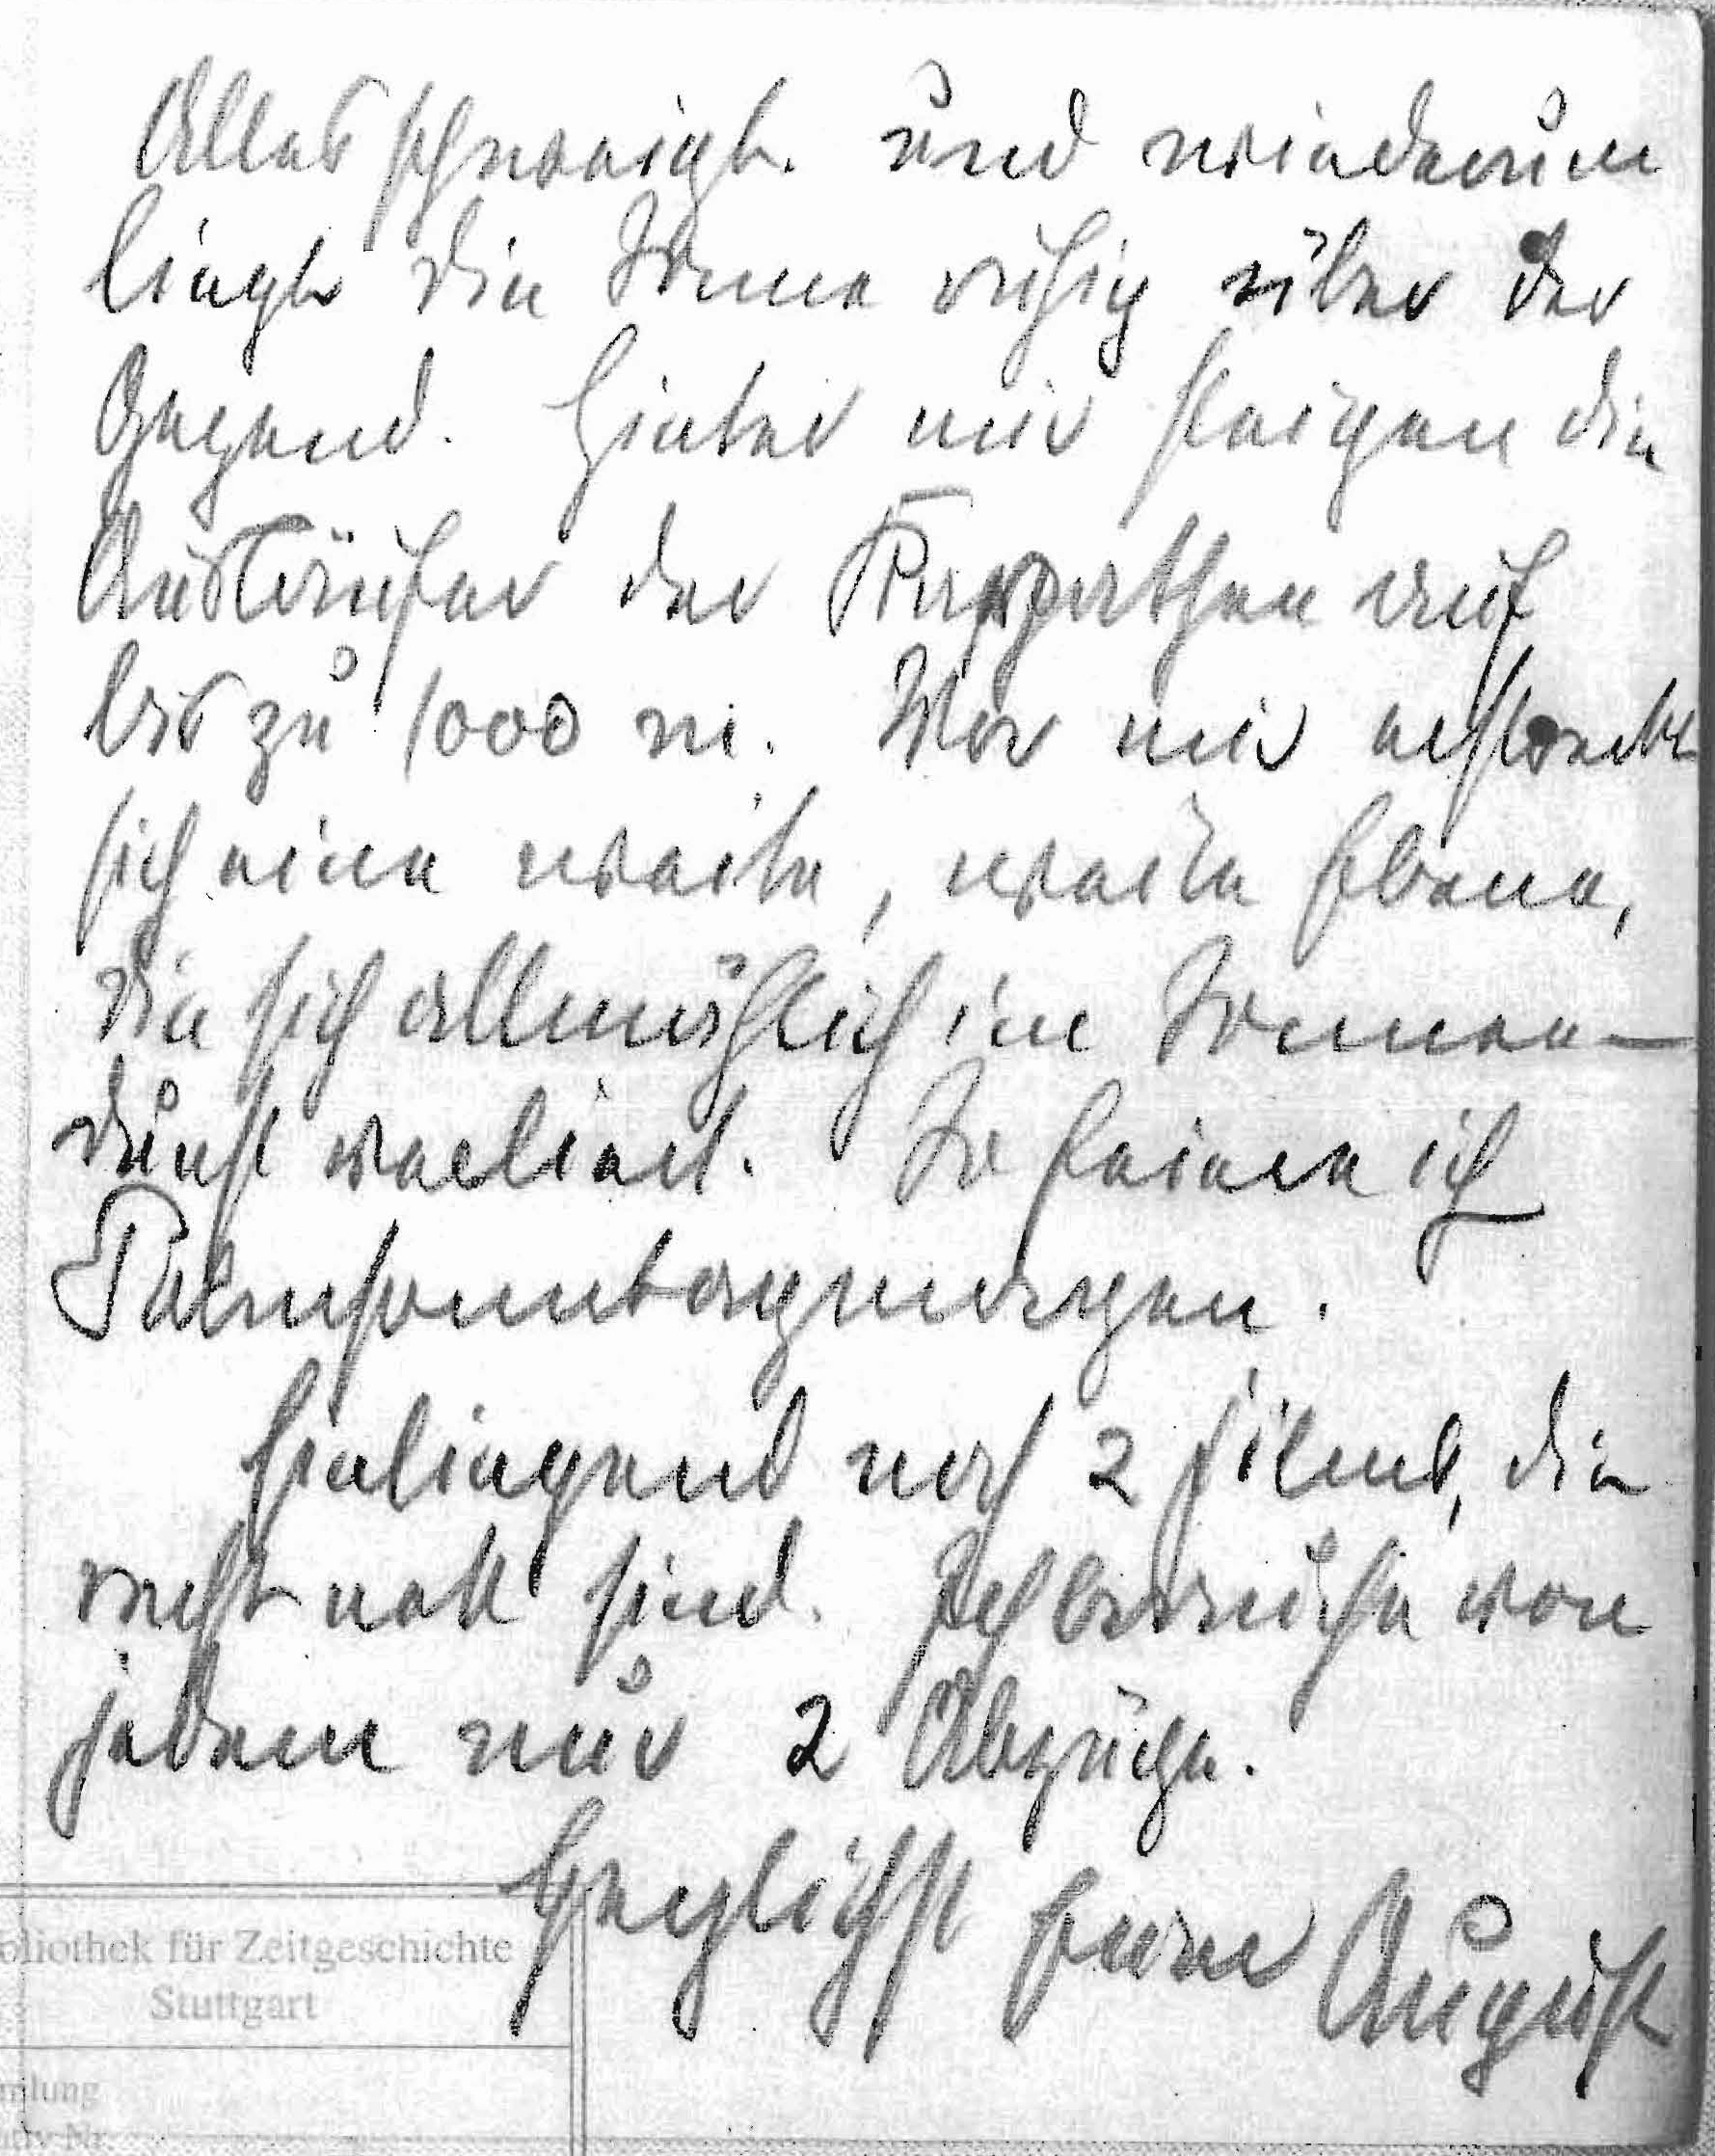 Alles schweigt. und wiederum
liegt die Sonne ruhig über der
Gegend. Hinter mir steigen die
Ausläufer der Karpathen auf
bis zu 1000 m. Vor mir erstreckt
sich eine weite, weite Ebene,
die sich allmählich im Sonnen-
dunst verliert. So feiere ich
Palmsonntagmorgen.
Einliegend noch 2 Films, die
recht nett sind. Ich brauche von
jedem nur 2 Abzüge.
Herzlichst Euer August
bliothek für Zeitgeschichte
Stuttgart
mlung